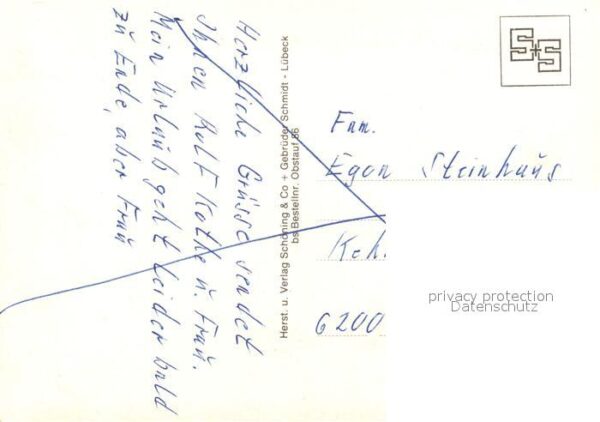 Herzliche Grüsse sendet
Ihnen Rolf Kothe u. Frau.
Mein Urlaub geht leider bald
zu Ende, aber Frau
Herst. u. Verlag Schöning & Co + Gebrüder Schmidt - Lübeck
bs Bestellnr. Obstauf 86
S+S
Fam.
Egon Steinhaus
6200
privacy protection
Datenschutz